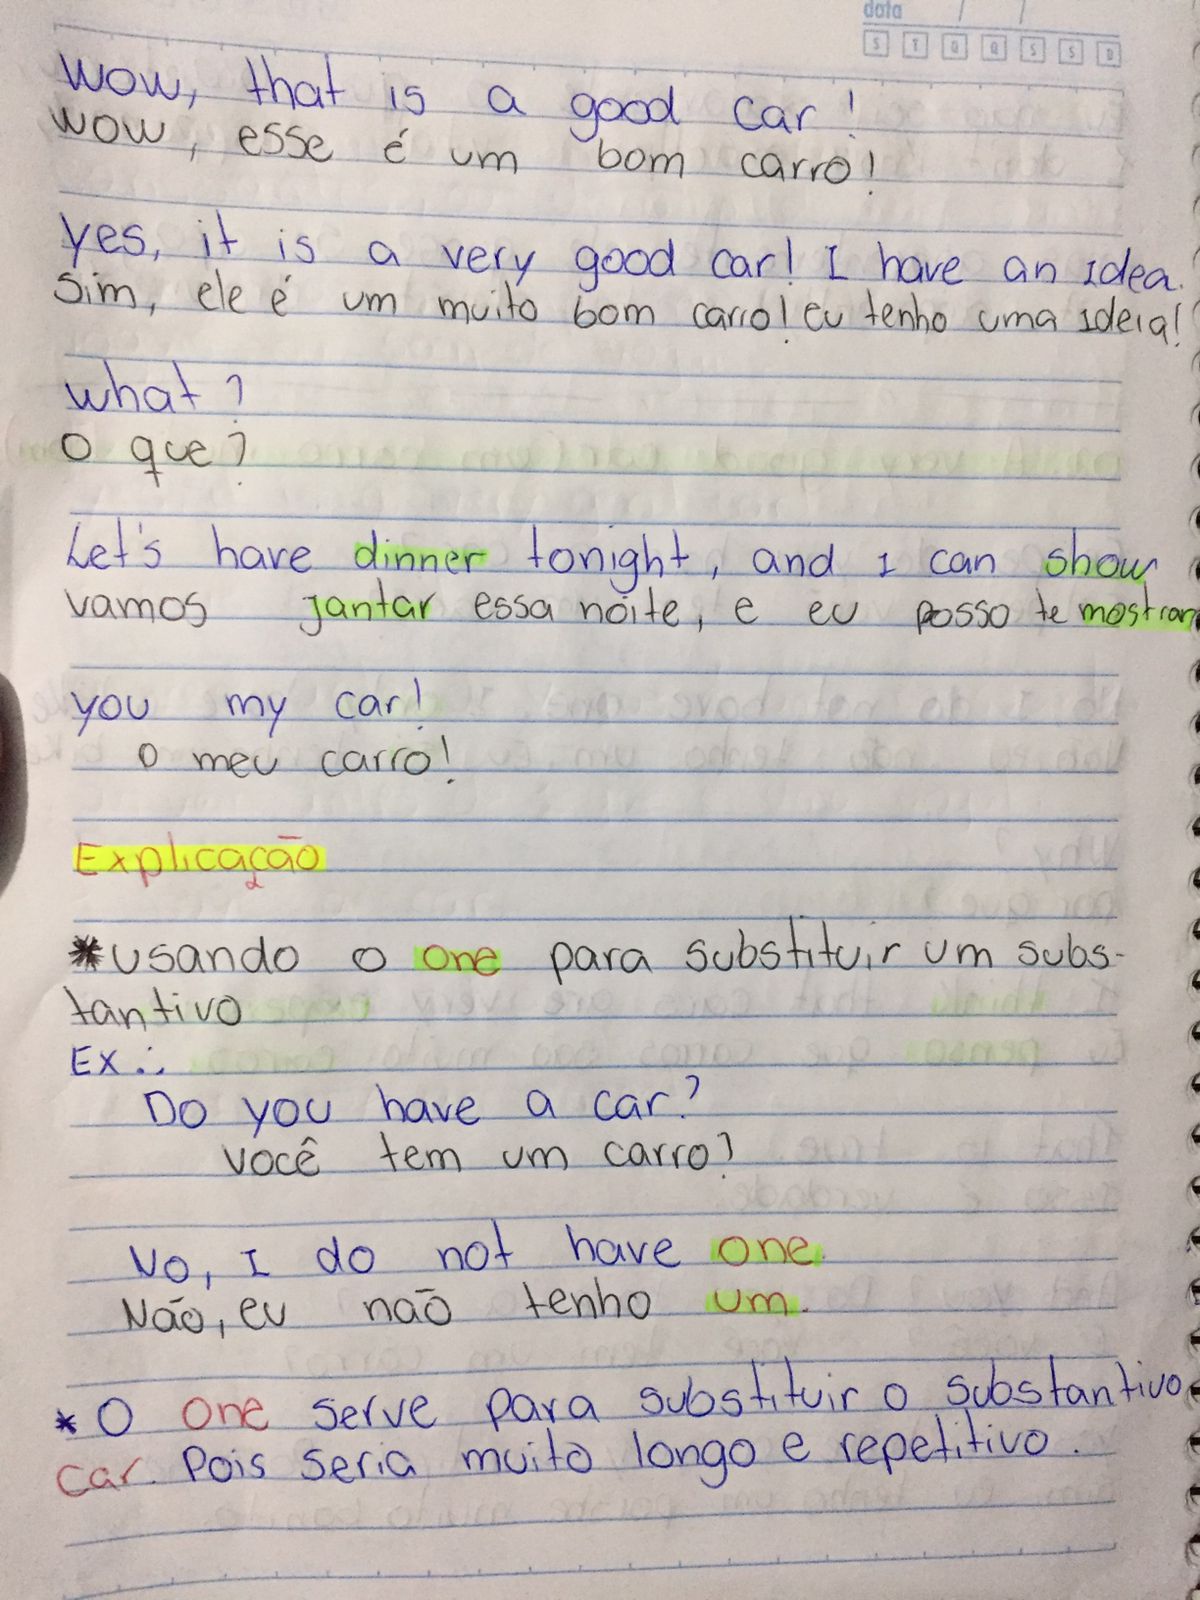 data / /
S T Q Q S S D
Wow, that is a good car!
Wow, esse é um bom carro!
Yes, it is a very good car! I have an idea.
Sim, ele é um muito bom carro! Eu tenho uma ideia!
What?
O que?
Let's have dinner tonight, and I can show
Vamos jantar essa noite, e eu posso te mostrar
you my car!
o meu carro!
Explicação
*Usando o one para substituir um subs-
tantivo
Ex.:
Do you have a car?
Você tem um carro?
No, I do not have one.
Não, eu não tenho um.
* O one serve para substituir o substantivo
car. Pois seria muito longo e repetitivo.